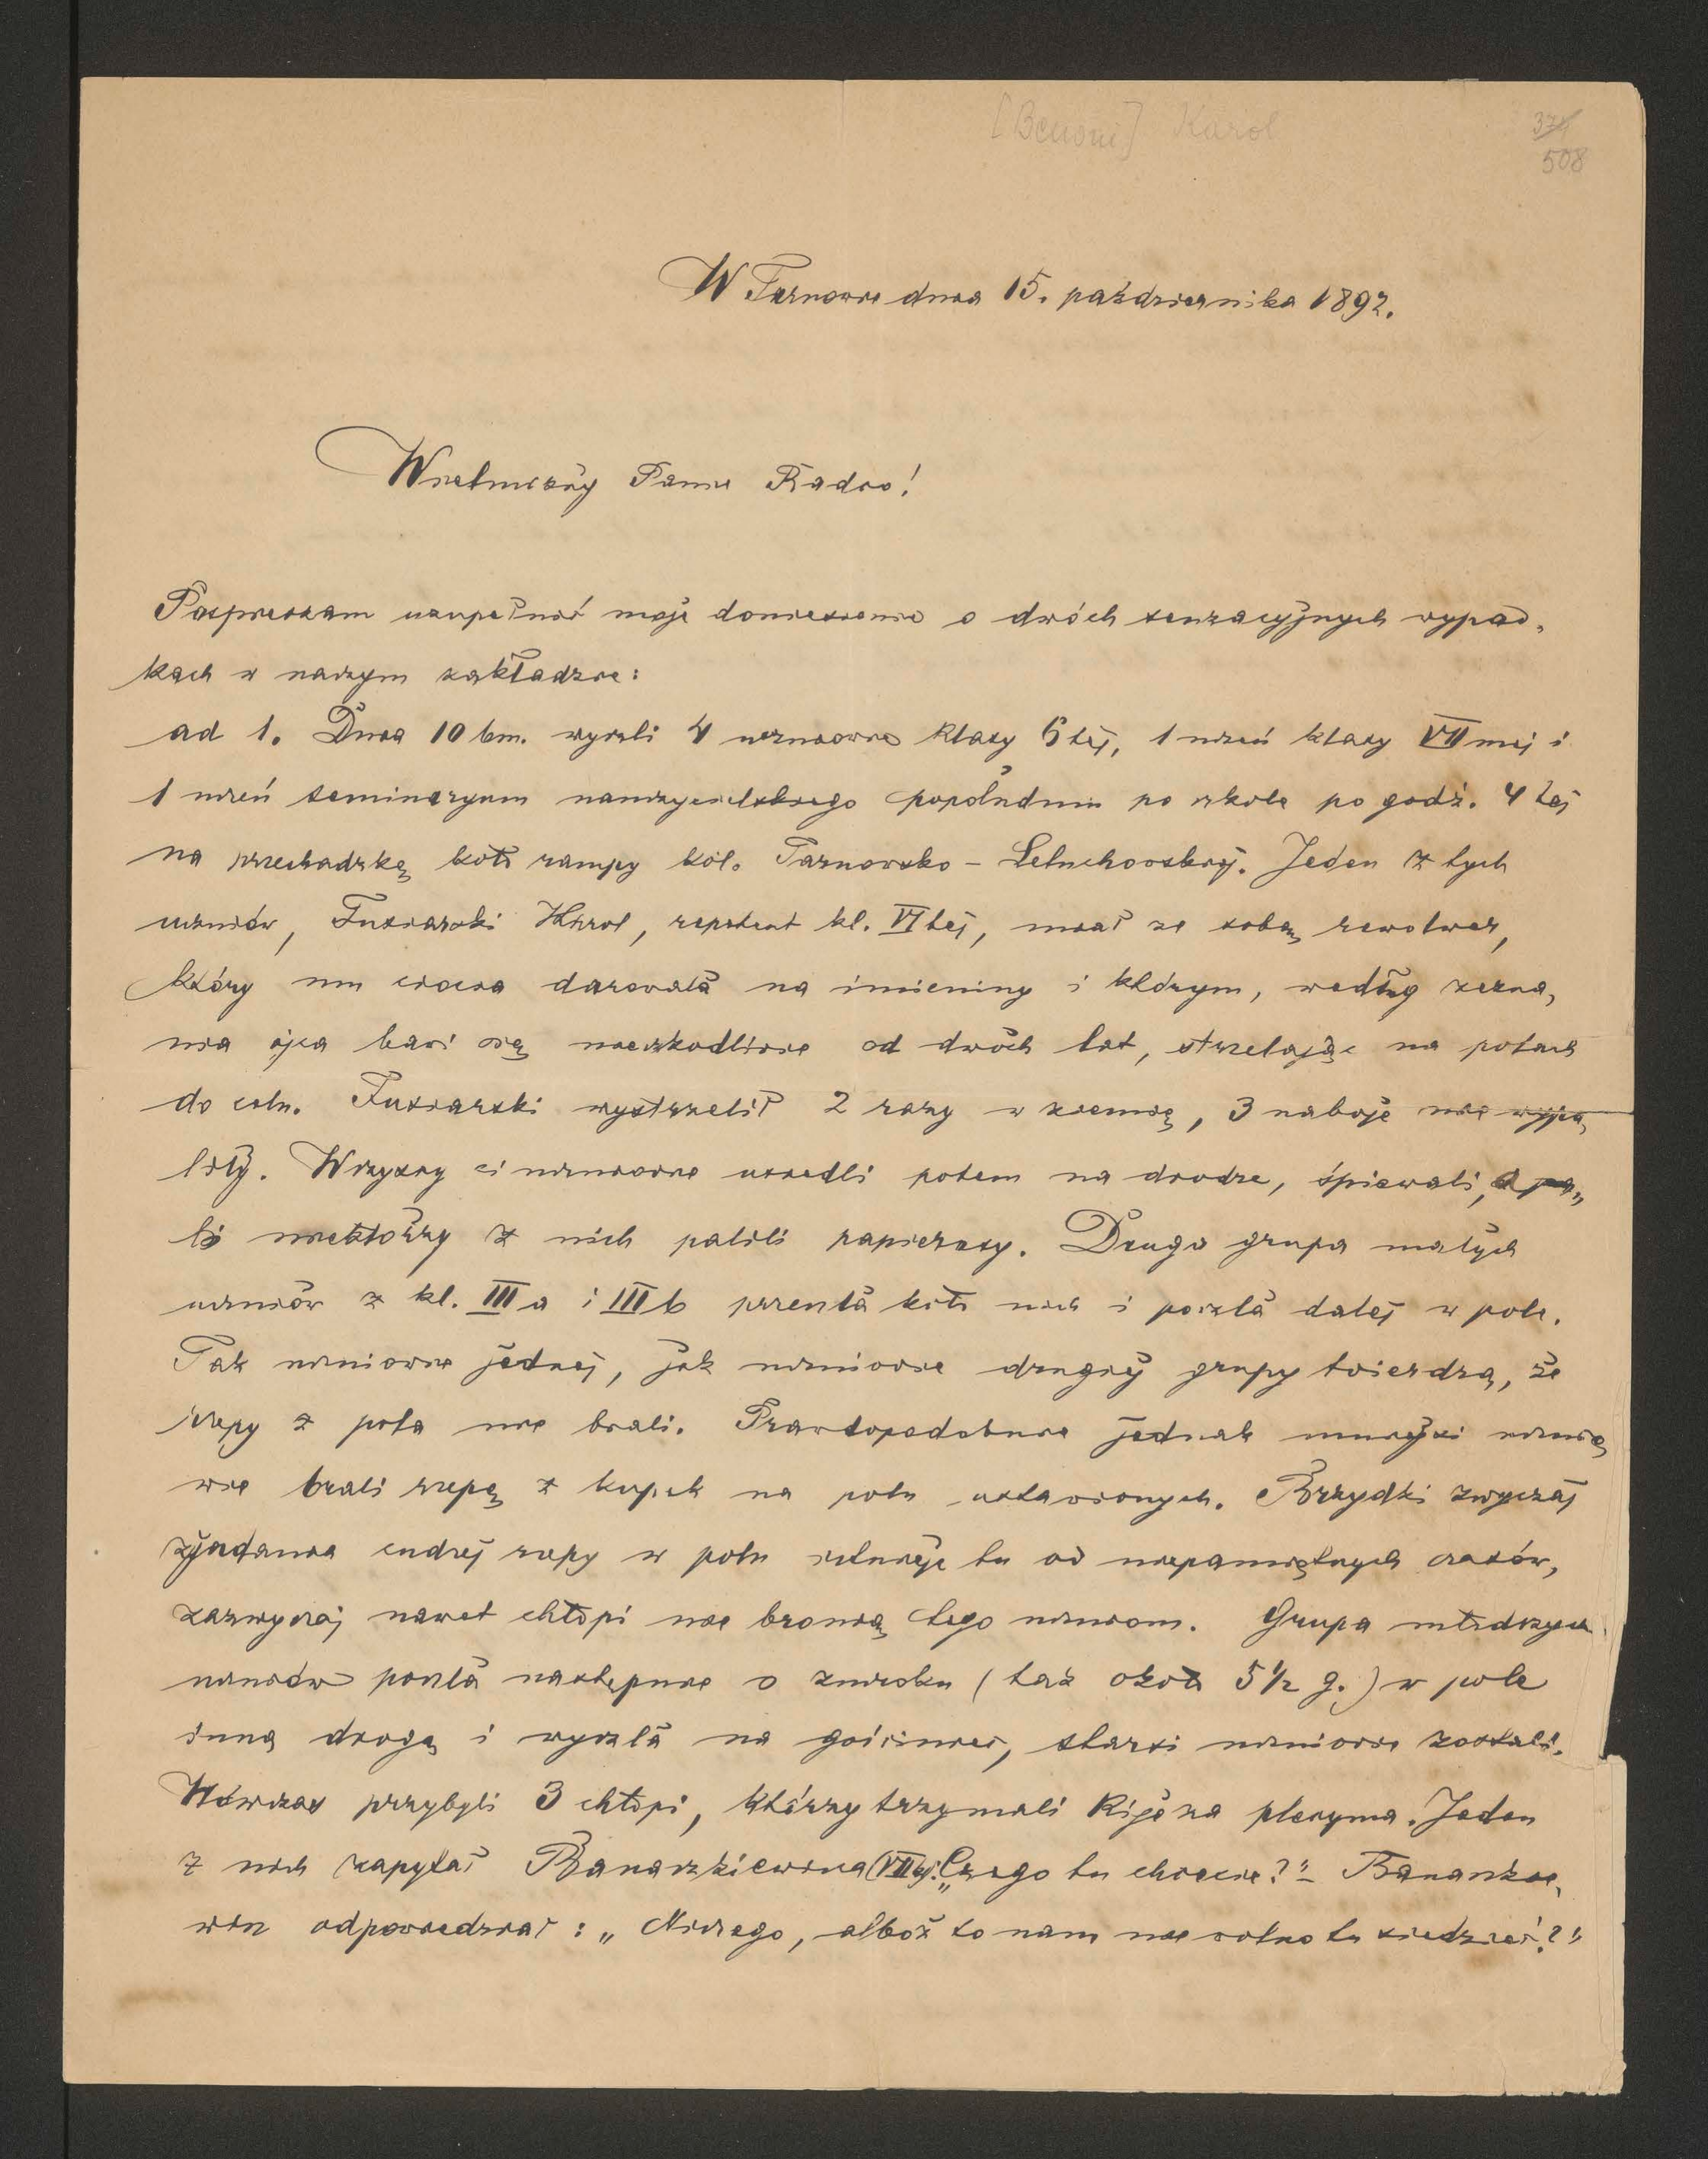 [Benoni] Karol
374
508
W Tarnowie dnia 15. października 1892.
Wielmożny Panie Radco!
Pospieszam uzupełnić moje doniesienie o dwóch senzacyjnych wypad„
kach w naszym zakładzie:
ad 1. Dnia 10 bm. wyszli 4 uczniowie klasy 6tej, 1 uczeń klasy VIImej i
1 uczeń seminaryum nauczycielskiego popołudniu po szkole po godz. 4tej
na przechadzkę koło rampy kol. Tarnowsko-Leluchowskiej. Jeden z tych
uczniów, Fusiarski Karol, repetent kl. VItej, miał ze sobą rewolwer,
który mu ciocia darowała na imieniny i którym, według zezna„
nia ojca bawi się nieszkodliwie od dwóch lat, strzelając na polach
do celu. Fusiarski wystrzelił 2 razy w ziemię, 3 naboje nie wypa„
liły. Wszyscy ci uczniowie usiedli potem na drodze, śpiewali,
niektórzy z nich palili papierosy. Druga grupa małych
uczniów z kl. III a i III b przeszła koło nich i poszła dalej w pole.
Tak uczniowie jednej, jak uczniowie drugiej grupy twierdzą, że
rzepy z pola nie brali. Prawdopodobnie jednak mniejsi ucznio„
wie brali rzepę z kupek na polu ustawionych. Brzydki zwyczaj
zjadania cudzej rzepy w polu istnieje tu od niepamiętnych czasów,
zazwyczaj nawet chłopi nie bronią tego uczniom. Grupa młodszych
uczniów poszła następnie o zmroku (tak około 5½ g.) w pole
inną drogą i wyszła na gościniec, starsi uczniowie zostali.
Wówczas przybyli 3 chłopi, którzy trzymali kije za plecyma. Jeden
z nich zapytał Banaszkiewicza (VII kl.): „Czego tu chcecie?" – Banaszkie„
wicz odpowiedział: „Niczego, alboż to nam nie wolno tu siedzieć?"